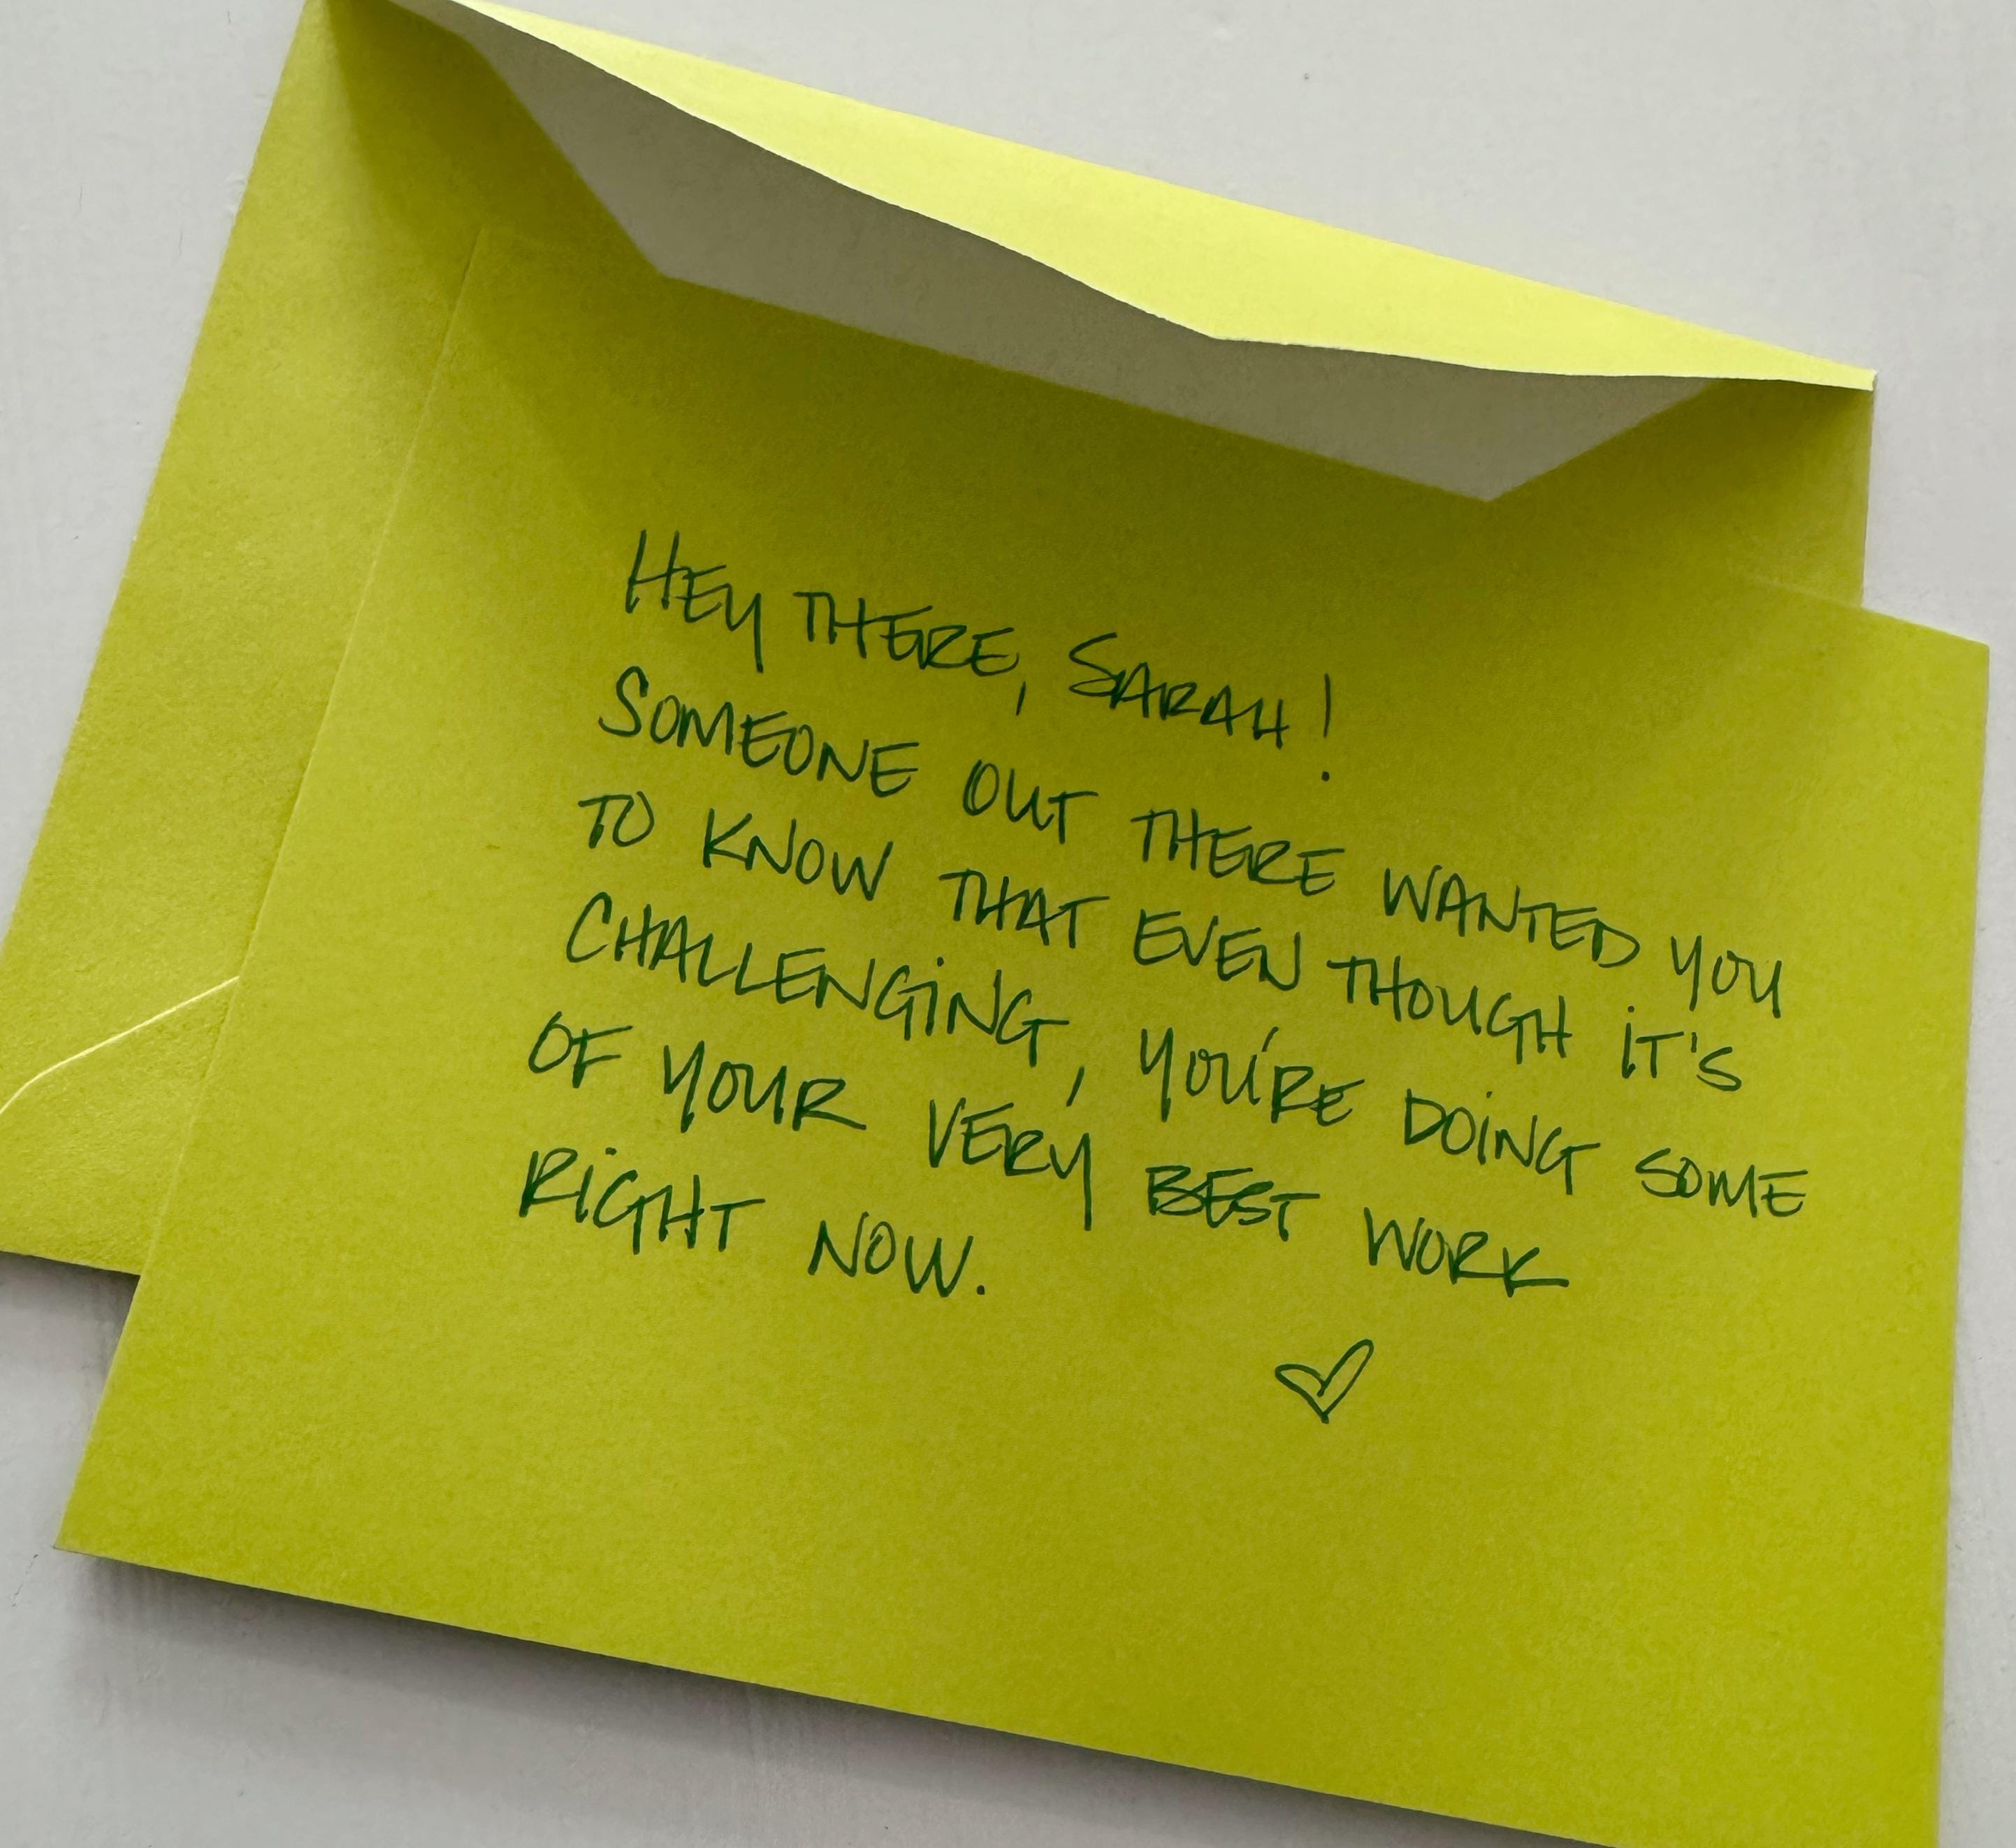 HEY THERE, SARAH!
SOMEONE OUT THERE WANTED YOU
TO KNOW THAT EVEN THOUGH IT'S
CHALLENGING, YOU'RE DOING SOME
OF YOUR VERY BEST WORK
RIGHT NOW.